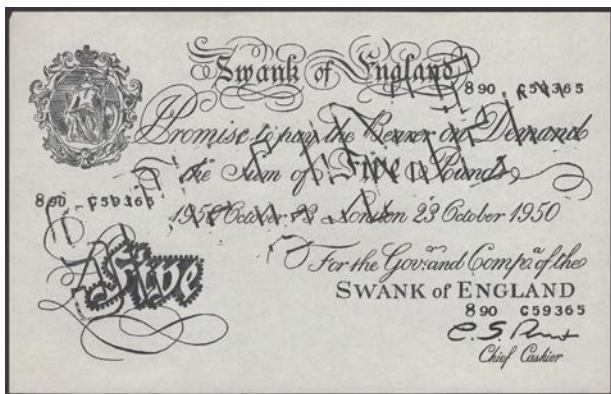 Swank of England
890 C59365
I Promise to pay the Bearer on Demand
the Sum of Five Pounds
890 C59365
1950 October 23 London 23 October 1950
For the Gov:r and Comp:a of the
Five
SWANK of ENGLAND
890 C59365
Chief Cashier